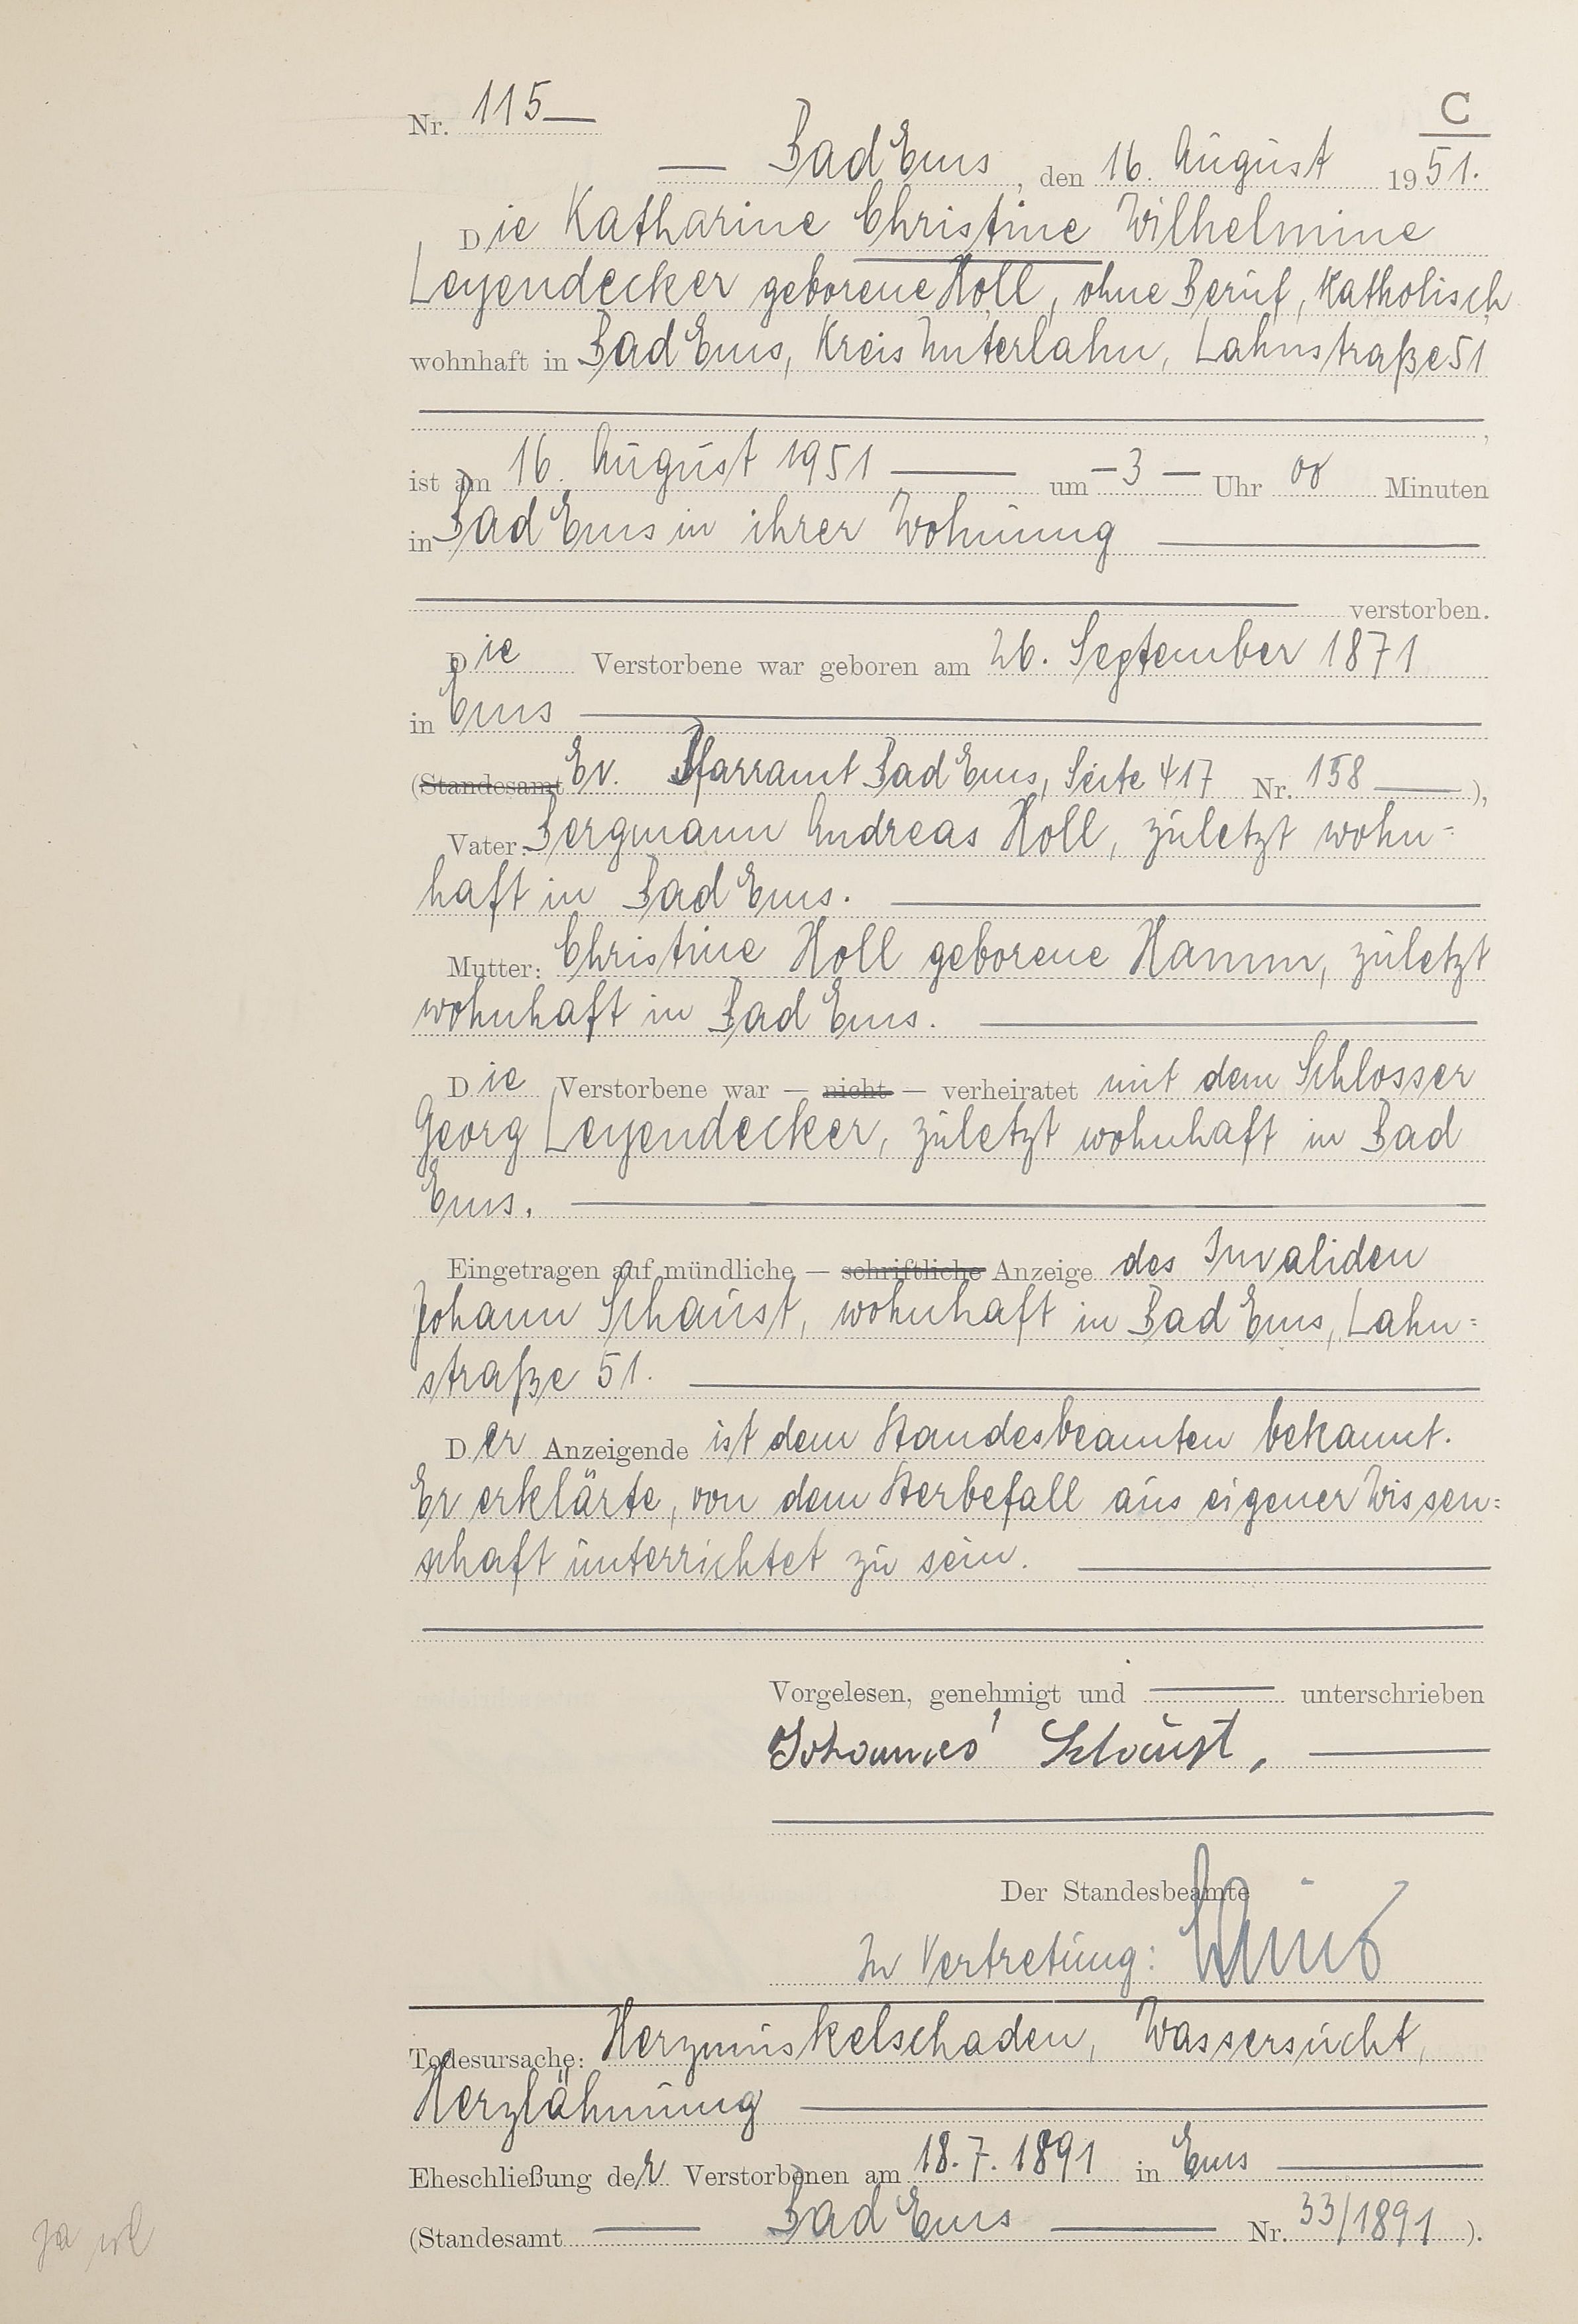 Nr. 115 —
C
— Bad Ems, den 16. August 1951.
Die Katharine Christine Wilhelmine
Leyendecker geborene Holl, ohne Beruf, katholisch
wohnhaft in Bad Ems, Kreis Unterlahn, Lahnstraße 51
,
ist am 16. August 1951 — um — 3 — Uhr 00 Minuten
in Bad Ems in ihrer Wohnung —
— verstorben.
Die Verstorbene war geboren am 26. September 1871
in Ems —
(Standesamt Ev. Pfarramt Bad Ems, Seite 417 Nr. 158 — ),
Vater: Bergmann Andreas Holl, zuletzt wohn=
haft in Bad Ems. —
Mutter: Christine Holl geborene Hamm, zuletzt
wohnhaft in Bad Ems. —
Die Verstorbene war — nicht — verheiratet mit dem Schlosser
Georg Leyendecker, zuletzt wohnhaft in Bad
Ems. —
Eingetragen auf mündliche — schriftliche Anzeige des Invaliden
Johann Schaust, wohnhaft in Bad Ems, Lahn=
straße 51. —
Der Anzeigende ist dem Standesbeamten bekannt.
Er erklärte, von dem Sterbefall aus eigener Wissen=
schaft unterrichtet zu sein. —
Vorgelesen, genehmigt und — unterschrieben
Johannes Schaust, —
Der Standesbeamte
In Vertretung:
Todesursache: Herzmuskelschaden, Wassersucht,
Herzlähmung —
Eheschließung der Verstorbenen am 18.7.1891 in Ems —
(Standesamt — Bad Ems — Nr. 33/1891 ).